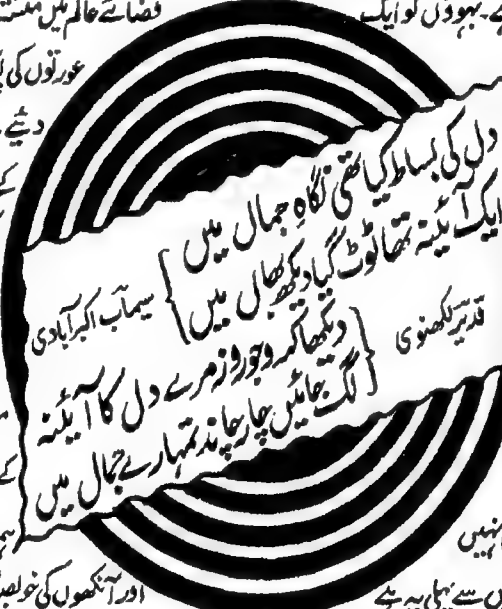 فضائے عالم میں
ہے۔ بہوؤں کو ایک
عورتوں کی
دئیے
کے
دل کی بساط کیا تھی نگاہِ جمال میں
ایک آئینہ تھا ٹوٹ گیا دیکھ بھال میں
سیماب اکبرآبادی
دیکھا کرو جو روز مرے دل کا آئینہ
لگ جائیں چار چاند تمہارے جمال میں
قدیر لکھنوی
کے
نہیں
اور آنکھوں کی
سے پہلی یہ ہے